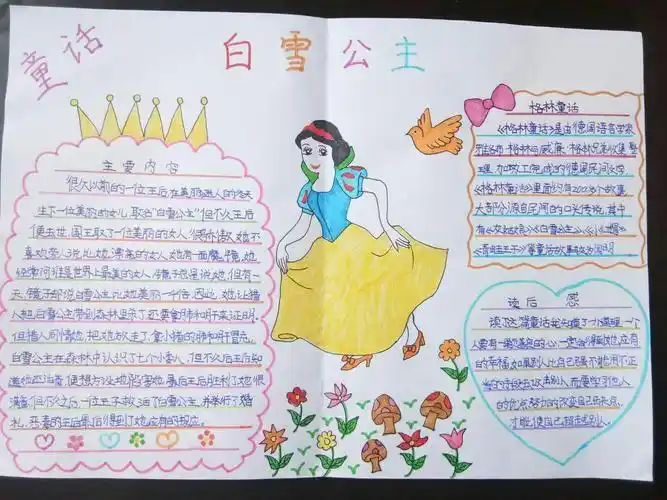 童话
白雪公主
主要内容
很久以前的一位王后在美丽迷人的冬天
生了一位美丽的女儿,取名"白雪公主"但不久王后
便去世,国王取了一位美丽的女人
喜欢人说比她漂亮的女人她有一面魔镜,她
经常问谁是世界上最美的女人,镜子总是说她,但有一
天,镜子却说白雪公主比她美丽一千倍,因此,她让猎
人把白雪公主带到森林里杀了还要拿肺和肝来证明,
但猎人同情她,把她放走了,拿小猪的肺和肝冒充,
白雪公主在森林中认识了七个小矮人,但不久后王后知
道她还活着,便想方法地陷害她,最后王后胜利了她很
满意,但不久之后,一位王子救活了白雪公主,并举行了婚
礼,恶毒的王后最后得到了她应有的报应。
格林童话
《格林童话》是由德国语言学家
雅各布·格林与威廉·格林兄弟收集整
理、加工完成的德国民间文学
《格林童话》里面约有200多个故事
大部分源自民间的口头传说,其中
有《灰姑娘》《白雪公主》《小红帽》
《青蛙王子》等童话故事
读后感
读了这篇童话我知道了一个道理,一个
人要有一颗善良的心,一定会得到她应有
的幸福,如果别人比自己强不能用不正
当的手段去攻击别人,而要学习他人
的优点努力的改变自己的不足,
才能使自己超越别人。